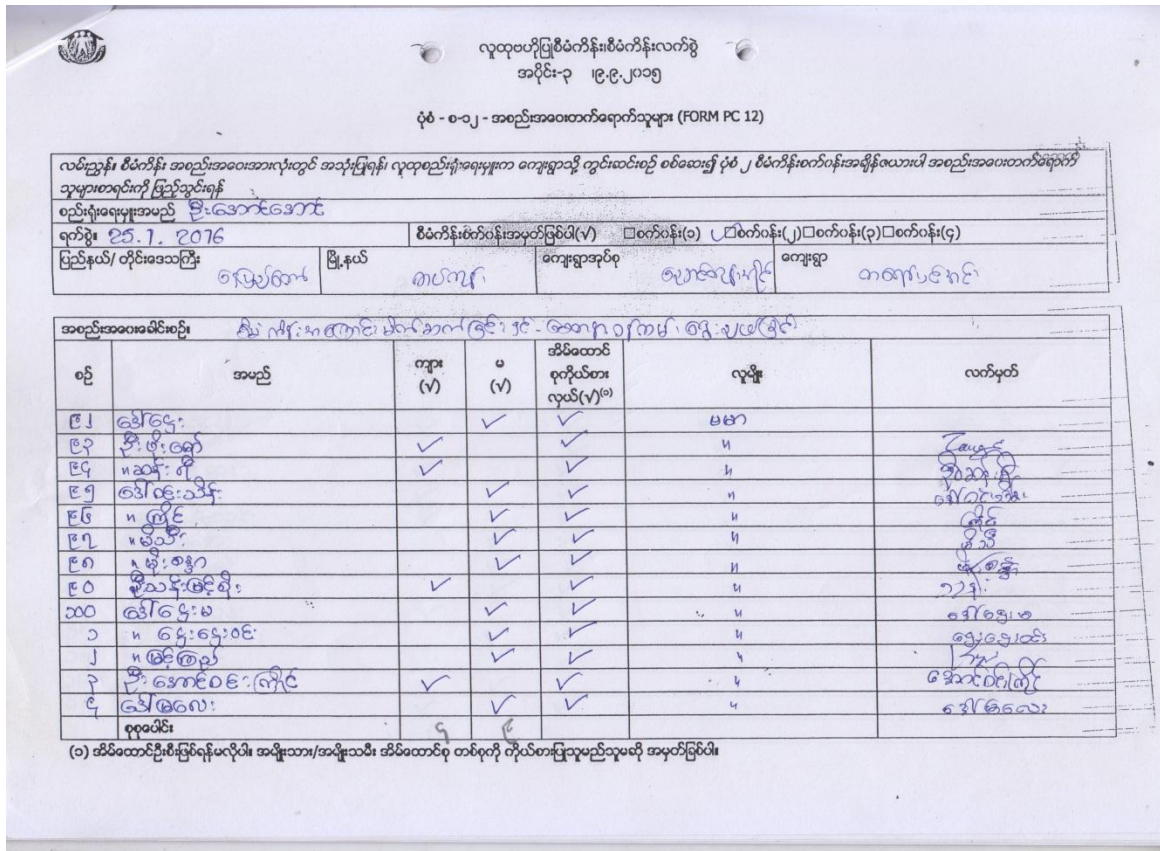 လူထုဗဟိုပြုစီမံကိန်း၊စီမံကိန်းလက်စွဲ
အပိုင်း-၃ ၊၉.၉.၂၀၁၅
ပုံစံ - စ-၁၂ - အစည်းအဝေးတက်ရောက်သူများ (FORM PC 12)
လမ်းညွှန်။ စီမံကိန်း အစည်းအဝေးအားလုံးတွင် အသုံးပြုရန်၊ လူထုစည်းရုံးရေးမှူးက ကျေးရွာသို့ ကွင်းဆင်းစဉ် စစ်ဆေး၍ ပုံစံ ၂ စီမံကိန်းစက်ဝန်းအချိန်ဇယားပါ အစည်းအဝေးတက်ရောက်
သူများစာရင်းကို ဖြည့်သွင်းရန်
စည်းရုံးရေးမှူးအမည် ဦးအောင်အောင်
ရက်စွဲ။ 25.1.2016 စီမံကိန်းစက်ဝန်းအမှတ်ဖြစ်ပါ(√) □စက်ဝန်း(၁) ✓□စက်ဝန်း(၂)□စက်ဝန်း(၃)□စက်ဝန်း(၄)
ပြည်နယ်/ တိုင်းဒေသကြီး နေပြည်တော် မြို့နယ် တပ်ကုန်း ကျေးရွာအုပ်စု ကျေးရွာ
အစည်းအဝေးခေါင်းစဉ်။
စဉ် အမည် ကျား (√) မ (√) အိမ်ထောင်စုကိုယ်စားလှယ်(√)(၁) လူမျိုး လက်မှတ်
၉၂ ဒေါ်ငွေး ✓ ✓ ဗမာ
၉၃ ဦးဖိုးရော် ✓ ✓ "
၉၄ " ဆန်းတီ ✓ ✓ "
၉၅ ဒေါ်ဝင်းသိန်း ✓ ✓ " ဒေါ်ဝင်းသိန်း
၉၆ " ကြိုင် ✓ ✓ " ကြိုင်
၉၇ " မိသီ ✓ ✓ " မိသီ
၉၈ " မိုးစန္ဒာ ✓ ✓ " မိုးစန္ဒာ
၉၀ ဦးသန်းမြင့်စိုး ✓ ✓ "
၁၀၀ ဒေါ်ဌေးမ ✓ ✓ " ဒေါ်ဌေးမ
၁ " ဌေးဌေးဝင်း ✓ ✓ " ဌေးဌေးဝင်း
၂ " မြင့်ကြည် ✓ ✓ "
၃ ဦးအောင်ဝင်းကြိုင် ✓ ✓ " အောင်ဝင်းကြိုင်
၄ ဒေါ်မြလေး ✓ ✓ " ဒေါ်မြလေး
စုစုပေါင်း ၄ ၉
(၁) အိမ်ထောင်ဦးစီးဖြစ်ရန်မလိုပါ။ အမျိုးသား/အမျိုးသမီး အိမ်ထောင်စု တစ်စုကို ကိုယ်စားပြုသူမည်သူမဆို အမှတ်ခြစ်ပါ။